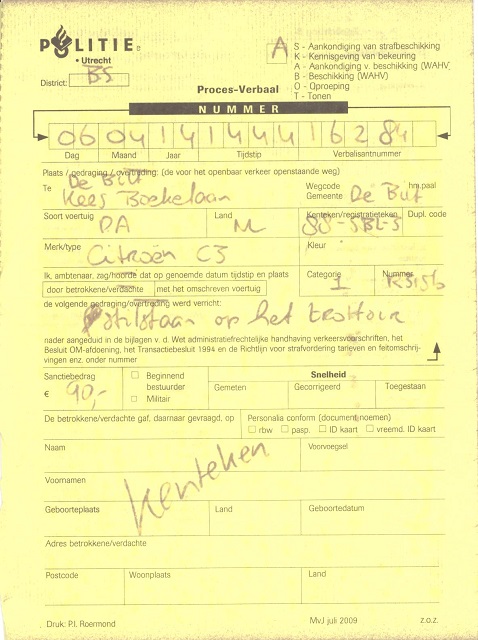 POLITIE
• Utrecht
District: BS
A
S - Aankondiging van strafbeschikking
K - Kennisgeving van bekeuring
A - Aankondiging v. beschikking (WAHV)
B - Beschikking (WAHV)
O - Oproeping
T - Tonen
Proces-Verbaal
NUMMER
06 04 14 1444 16284
Dag Maand Jaar Tijdstip Verbalisantnummer
Plaats / gedraging / overtreding: (de voor het openbaar verkeer openstaande weg)
De Bilt
Te Kees Boekelaan
Wegcode hm.paal
Gemeente De Bilt
Soort voertuig Land Kenteken/registratieteken Dupl. code
PA NL 88-SBL-5
Merk/type Kleur
Citroën C3
Ik, ambtenaar, zag/hoorde dat op genoemde datum tijdstip en plaats
Categorie Nummer
door betrokkene/verdachte met het omschreven voertuig
1 R315b
de volgende gedraging/overtreding werd verricht:
stilstaan op het trottoir
nader aangeduid in de bijlagen v. d. Wet administratiefrechtelijke handhaving verkeersvoorschriften, het
Besluit OM-afdoening, het Transactiebesluit 1994 en de Richtlijn for strafvordering tarieven en feitomschrij-
vingen enz. onder nummer
Sanctiebedrag
€ 90,-
Beginnend
bestuurder
Militair
Snelheid
Gemeten Gecorrigeerd Toegestaan
De betrokkene/verdachte gaf, daarnaar gevraagd, op
Personalia conform (document noemen)
rbw pasp. ID kaart vreemd. ID kaart
Naam Voorvoegsel
Kenteken
Voornamen
Geboorteplaats Land Geboortedatum
Adres betrokkene/verdachte
Postcode Woonplaats Land
Druk: P.I. Roermond MvJ juli 2009 z.o.z.